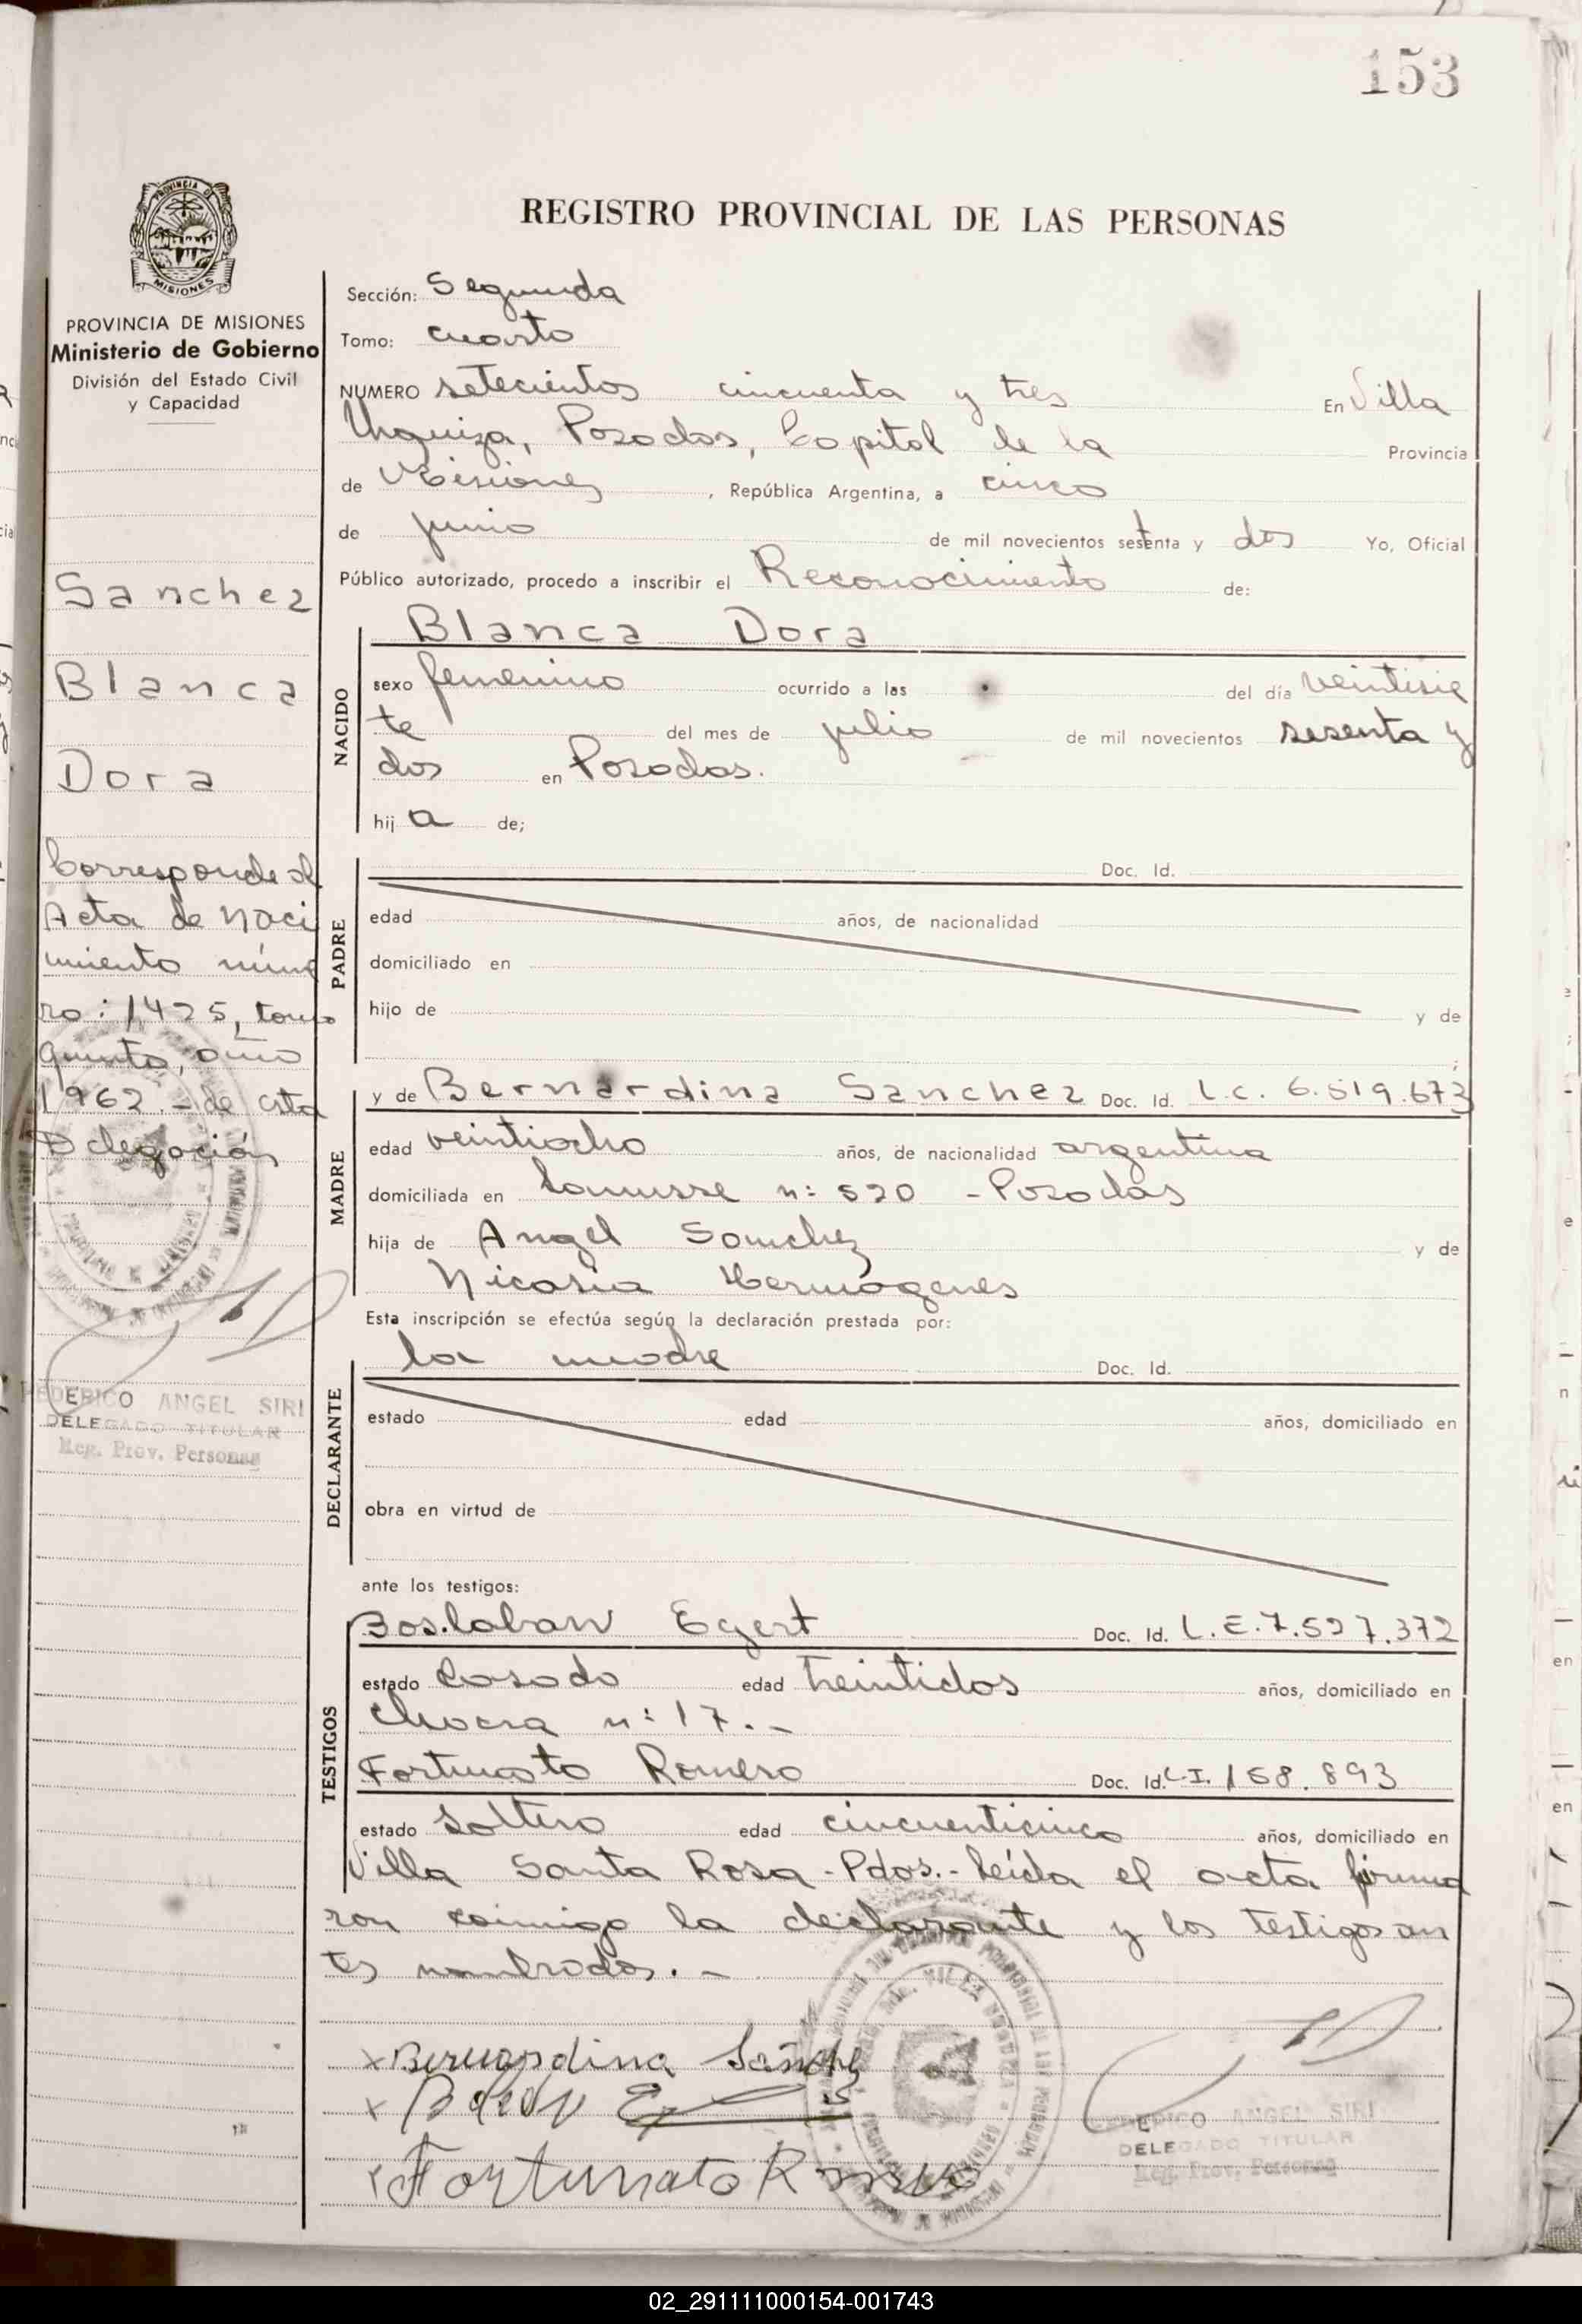 153
REGISTRO PROVINCIAL DE LAS PERSONAS
PROVINCIA DE MISIONES
Ministerio de Gobierno
División del Estado Civil
y Capacidad
Sanchez
Blanca
Dora
Corresponde al
Acta de naci
miento núme
ro: 1425, tomo
quinto, año
1962.- de esta
Delegación
FEDERICO ANGEL SIRI
DELEGADO TITULAR
Reg. Prov. Personas
Sección: Segunda
Tomo: cuarto
NUMERO setecientos cincuenta y tres En Villa
Urquiza, Posadas, Capital de la Provincia
de Misiones, República Argentina, a cinco
de junio de mil novecientos setenta y dos Yo, Oficial
Público autorizado, procedo a inscribir el Reconocimiento de:
NACIDO
Blanca Dora
sexo femenino ocurrido a las del día veintisie
te del mes de julio de mil novecientos sesenta y
dos en Posadas.
hij a de;
PADRE
Doc. Id.
edad años, de nacionalidad
domiciliado en
hijo de y de
MADRE
y de Bernardina Sanchez Doc. Id. L.C. 6.519.673
edad veintiocho años, de nacionalidad argentina
domiciliada en Lanusse n: 520 - Posadas
hija de Angel Sanchez y de
Nicasia Hermogenes
Esta inscripción se efectúa según la declaración prestada por:
DECLARANTE
la madre Doc. Id.
estado edad años, domiciliado en
obra en virtud de
ante los testigos:
TESTIGOS
Boslaban Egert Doc. Id. L.E. 7.527.372
estado Casado edad treintidos años, domiciliado en
Chacra n: 17.-
Fortunato Romero Doc. Id. C.I. 158.893
estado soltero edad cincuenticinco años, domiciliado en
Villa Santa Rosa - Pdas.- Leída el acta firma
ron conmigo la declarante y los testigos an
tes nombrados.-
x Bernardina Sánchez
x
x Fortunato Romero
FEDERICO ANGEL SIRI
DELEGADO TITULAR
Reg. Prov. Personas
02_291111000154-001743